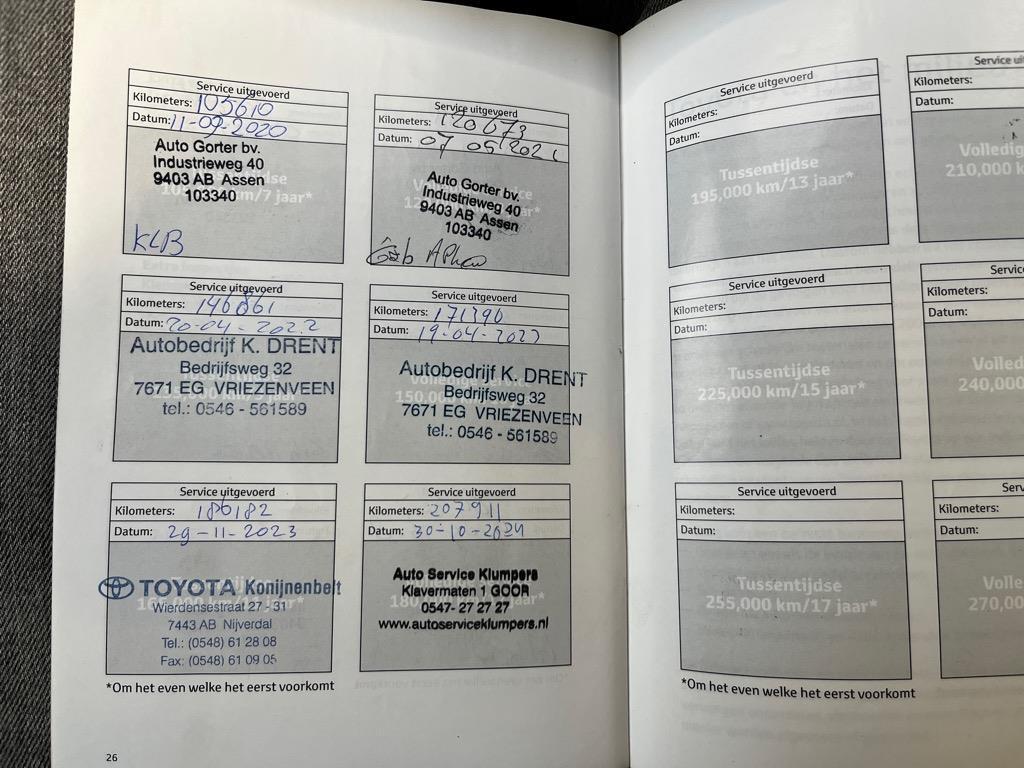 Service uitgevoerd
Kilometers: 105610
Datum: 11-09-2020
Auto Gorter bv.
Industrieweg 40
9403 AB Assen
103340
km/7 jaar*
KLB
Service uitgevoerd
Kilometers: 120673
Datum: 07 09 2021
Auto Gorter bv.
Industrieweg 40
9403 AB Assen
103340
Service uitgevoerd
Kilometers: 146861
Datum: 20-04-2022
Autobedrijf K. DRENT
Bedrijfsweg 32
7671 EG VRIEZENVEEN
tel.: 0546 - 561589
Service uitgevoerd
Kilometers: 171390
Datum: 19-04-2023
Autobedrijf K. DRENT
Bedrijfsweg 32
7671 EG VRIEZENVEEN
tel.: 0546 - 561589
Service uitgevoerd
Kilometers: 186182
Datum: 29-11-2023
TOYOTA Konijnenbelt
Wierdensestraat 27 - 31
7443 AB Nijverdal
Tel.: (0548) 61 28 08
Fax: (0548) 61 09 05
Service uitgevoerd
Kilometers: 207911
Datum: 30-10-2024
Auto Service Klumpers
Klavermaten 1 GOOR
0547- 27 27 27
www.autoserviceklumpers.nl
*Om het even welke het eerst voorkomt
26
Service uitgevoerd
Kilometers:
Datum:
Tussentijdse
195,000 km/13 jaar*
Service
Kilometers:
Datum:
Volledig
210,000 k
Service uitgevoerd
Kilometers:
Datum:
Tussentijdse
225,000 km/15 jaar*
Servic
Kilometers:
Datum:
Volled
240,000
Service uitgevoerd
Kilometers:
Datum:
Tussentijdse
255,000 km/17 jaar*
Serv
Kilometers:
Datum:
Volle
270,00
*Om het even welke het eerst voorkomt